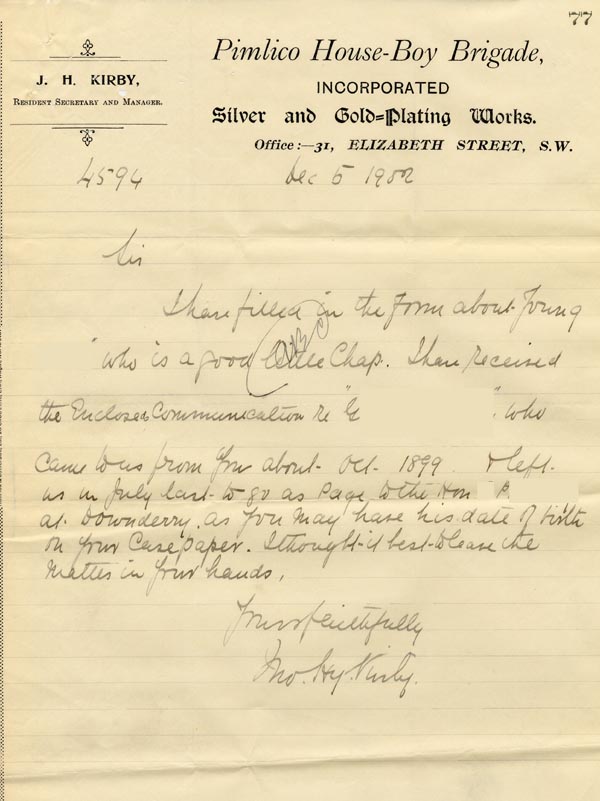 77
J. H. KIRBY,
RESIDENT SECRETARY AND MANAGER.
Pimlico House-Boy Brigade,
INCORPORATED
Silver and Gold=Plating Works.
Office:—31, ELIZABETH STREET, S.W.
4594
Dec 5 1902
Sir
I have filled in the form about young
"who is a good little Chap. I have received
the Enclosed Communication re "G ". who
Came to us from you about Oct 1899 & left
us in July last to go as Page to the Hon P.
at Downderry. as you may have his date of birth
on your Case paper. I thought it best to leave the
Matter in your hands.
Yours faithfully
Jno. Hy. Kirby.